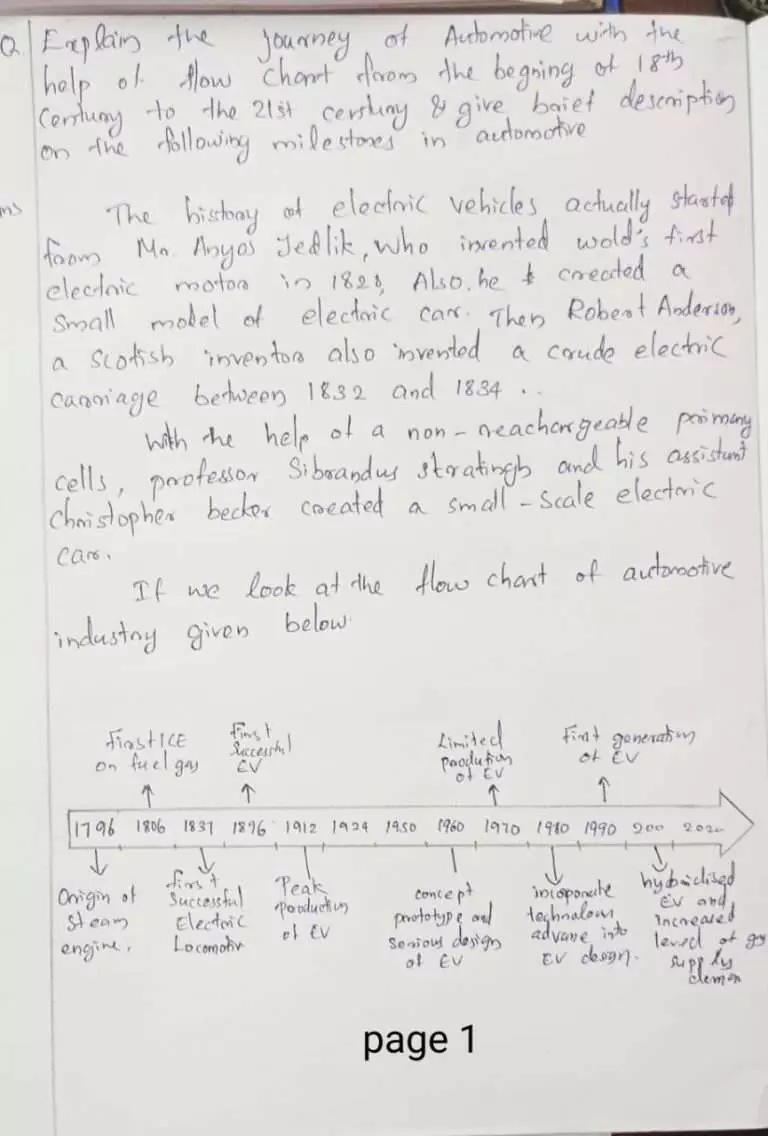 Q Explain the journey of Automotive with the
help of flow chart from the begning of 18th
Century to the 21st century & give brief description
on the following milestones in automotive
ms The history of electric vehicles actually started
from Mr. Anyos Jedlik, who invented wold's first
electric motor in 1828, Also he created a
small model of electric car. Then Robert Anderson,
a scotish inventor also invented a crude electric
carriage between 1832 and 1834 ..
With the help of a non-reachargeable primary
cells, professor Sibrandus stratingh and his assistant
Christopher becker created a small-scale electric
car.
If we look at the flow chart of automotive
industry given below.
First ICE
on fuel gas
First
Successful
EV
Limited
production
of EV
First generation
of EV
1796 1806 1837 1896 1912 1924 1950 1960 1970 1980 1990 200 2020
Origin of
steam
engine.
first
Successful
Electric
Locomotiv
Peak
production
of EV
concept
prototype and
serious design
of EV
incoporate
technalow
advane into
EV design.
hybridised
EV and
increased
level of
supply
deman
page 1